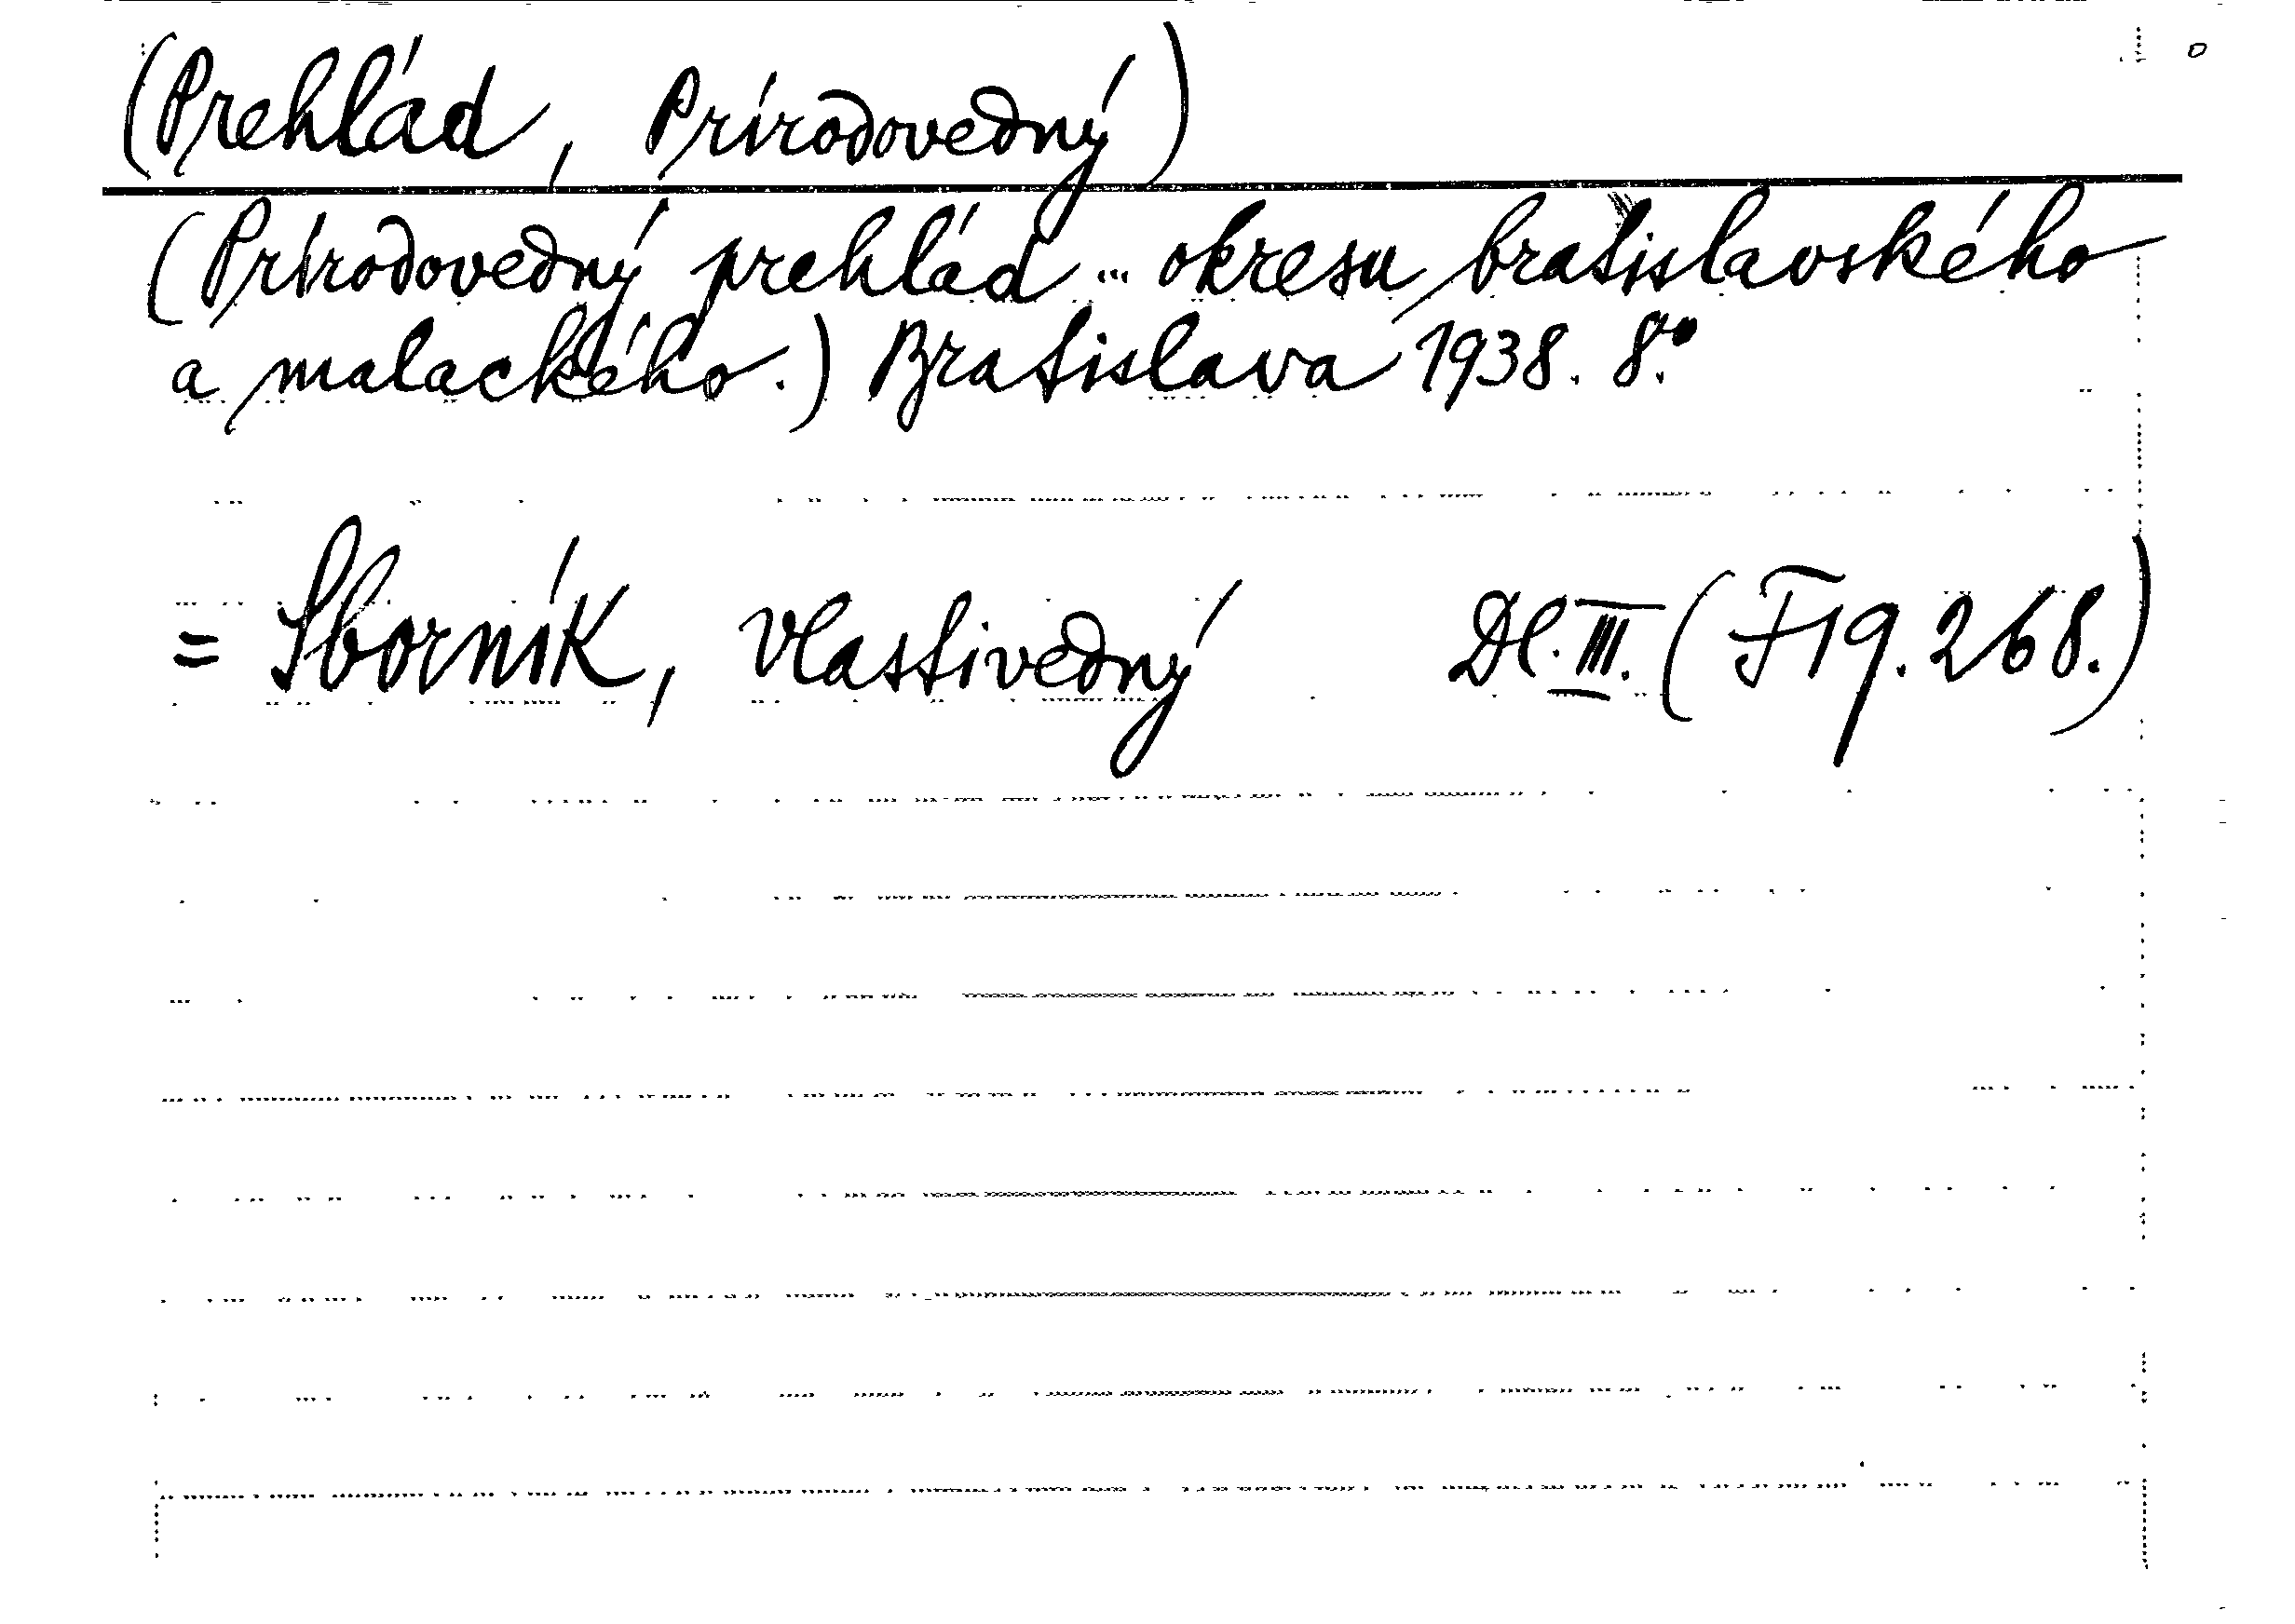 (Prehlád, Prírodovedný)
(Prírodovedný prehlád ... okresu bratislavského
a malackého.) Bratislava 1938. 8°.
= Sborník, vlastivedný Dl. III. (F 19.268.)